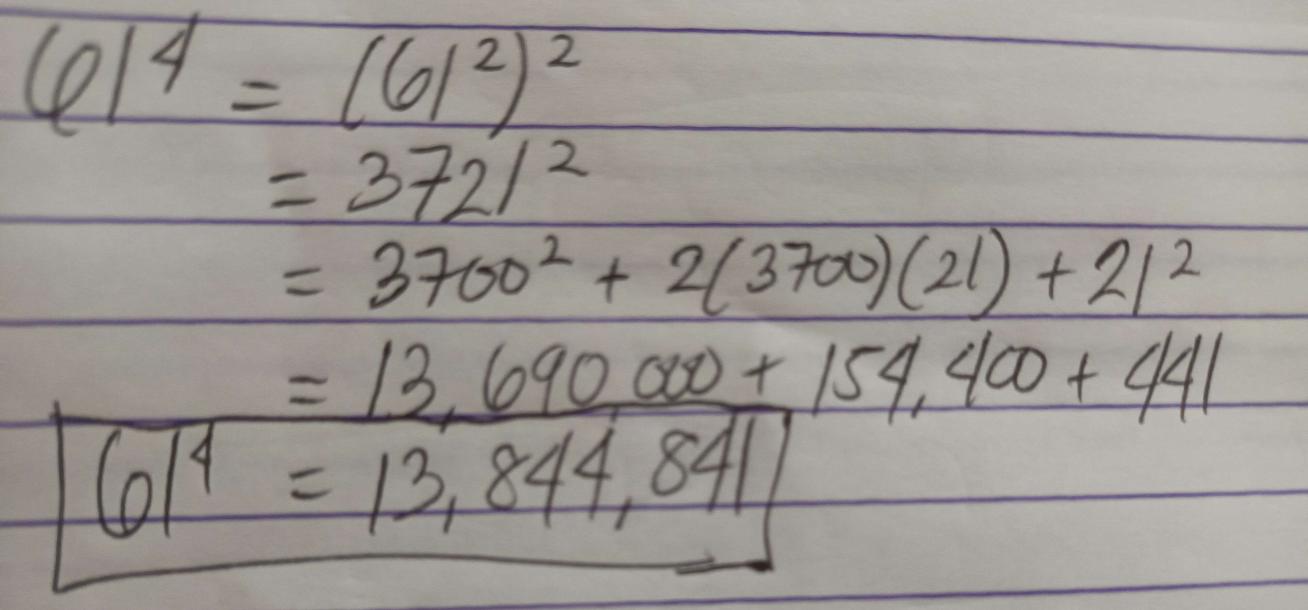 61⁴ = (61²)²
= 3721²
= 3700² + 2(3700)(21) + 21²
= 13,690,000 + 154,400 + 441
61⁴ = 13,844,841